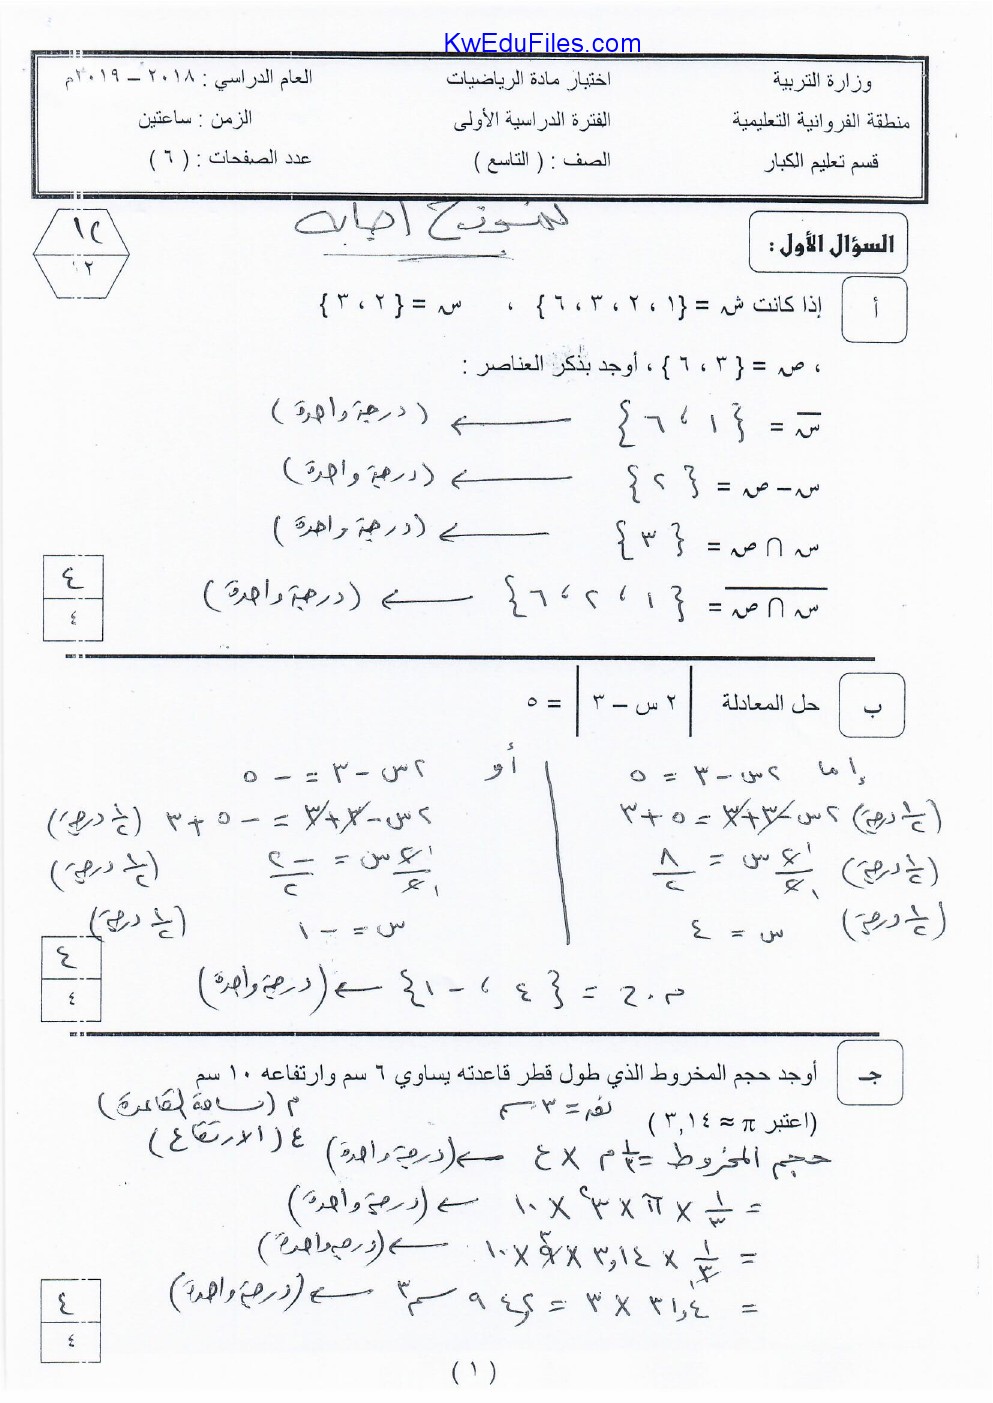 KwEduFiles.com
وزارة التربية
اختبار مادة الرياضيات
العام الدراسي : ٢٠١٨ – ٢٠١٩م
منطقة الفروانية التعليمية
الفترة الدراسية الأولى
الزمن : ساعتين
قسم تعليم الكبار
الصف : ( التاسع )
عدد الصفحات : ( ٦ )
نموذج اجابه
السؤال الأول :
١٢
١٢
أ
إذا كانت ش = {١ ، ٢ ، ٣ ، ٦} ، س = {٢ ، ٣}
، ص = {٣ ، ٦} ، أوجد بذكر العناصر :
س̅ = {١ ، ٦} ← (درجة واحدة)
س – ص = {٢} ← (درجة واحدة)
س ∩ ص = {٣} ← (درجة واحدة)
س ∩ ص = {١ ، ٢ ، ٦} ← (درجة واحدة)
٤
٤
ب
حل المعادلة | ٢ س – ٣ | = ٥
إما ٢س - ٣ = ٥ أو ٢س - ٣ = - ٥
٢س - ٣ + ٣ = ٥ + ٣ (½ درجة) ٢س - ٣ + ٣ = - ٥ + ٣ (½ درجة)
٢س/٢ = ٨/٢ (½ درجة) ٢س/٢ = -٢/٢ (½ درجة)
س = ٤ (½ درجة) س = - ١ (½ درجة)
م.ح = {٤ ، - ١} ← (درجة واحدة)
٤
٤
جـ
أوجد حجم المخروط الذي طول قطر قاعدته يساوي ٦ سم وارتفاعه ١٠ سم
(اعتبر π ≈ ٣,١٤ )
نق = ٣ سم
م (مساحة القاعدة)
ع (الارتفاع)
حجم المخروط = ⅓ م × ع ← (درجة واحدة)
= ١/٣ × π × ٣² × ١٠ ← (درجة واحدة)
= ١/٣ × ٣,١٤ × ٩ × ١٠ ← (درجة واحدة)
= ٣١,٤ × ٣ = ٩٤,٢ سم³ ← (درجة واحدة)
٤
٤
( ١ )